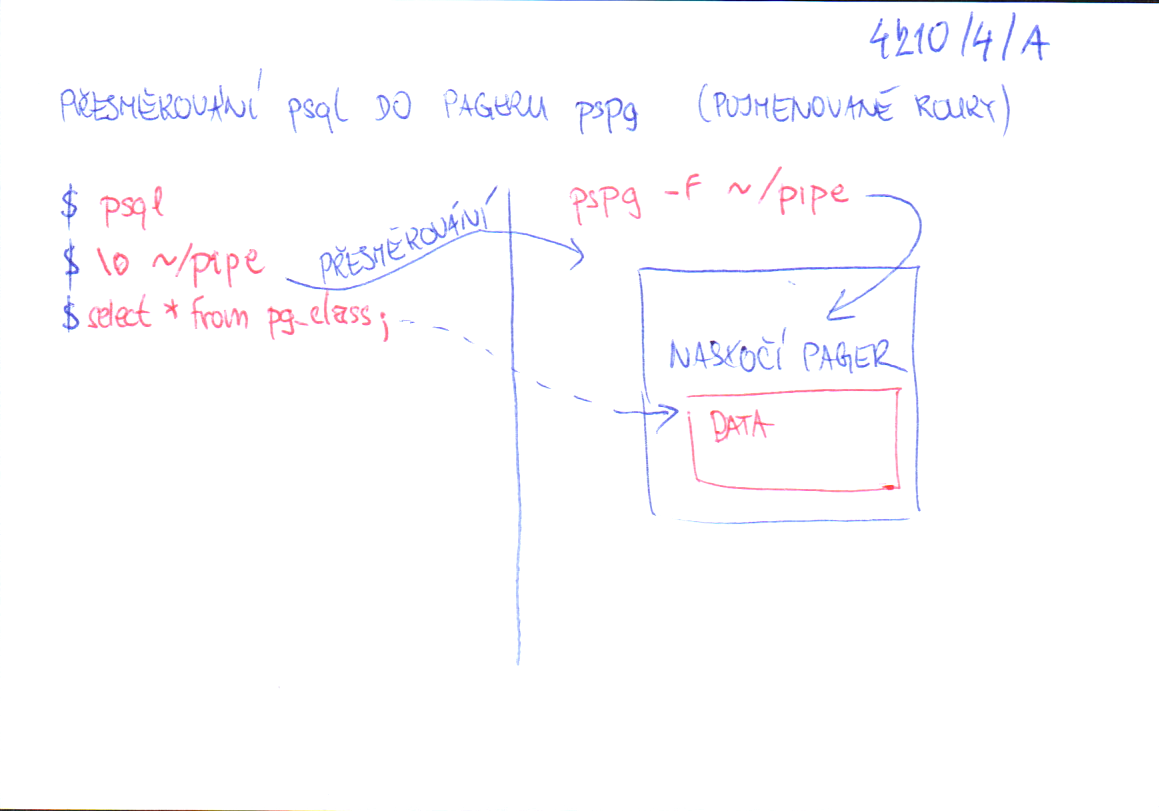 4210/4/A
PŘESMĚROVÁNÍ psql DO PAGERU pspg (POJMENOVANÉ ROURY)
$ psql
$ \o ~/pipe
$ select * from pg_class;
PŘESMĚROVÁNÍ
pspg -f ~/pipe
NASKOČÍ PAGER
DATA